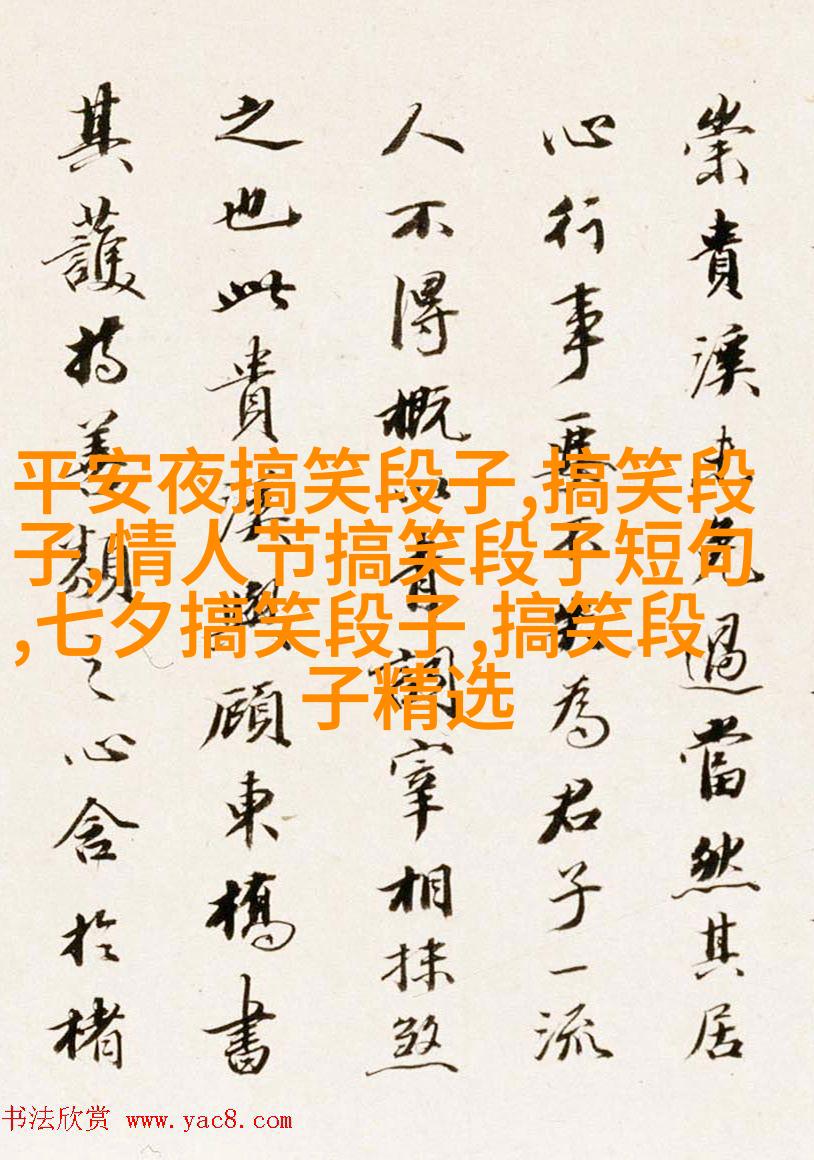 崇貴溪
過當然其居
心行事要不失為君子一流
人不得概以青詞宰相抹煞
之也此貴溪與顧東橋書
其護持善類之心含於楮
平安夜搞笑段子,搞笑段
子,情人节搞笑段子短句
,七夕搞笑段子,搞笑段
子精选
书法欣赏 www.yac8.com